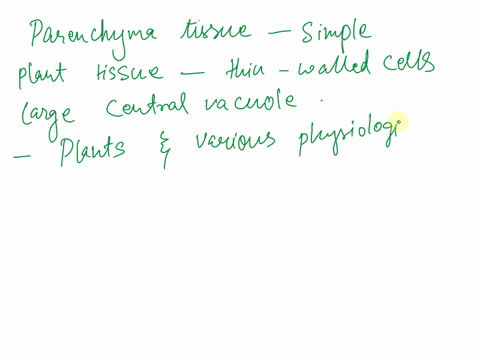 Parenchyma tissue - Simple
plant tissue - thin-walled cells
large central vacuole.
- Plants & various physiologi